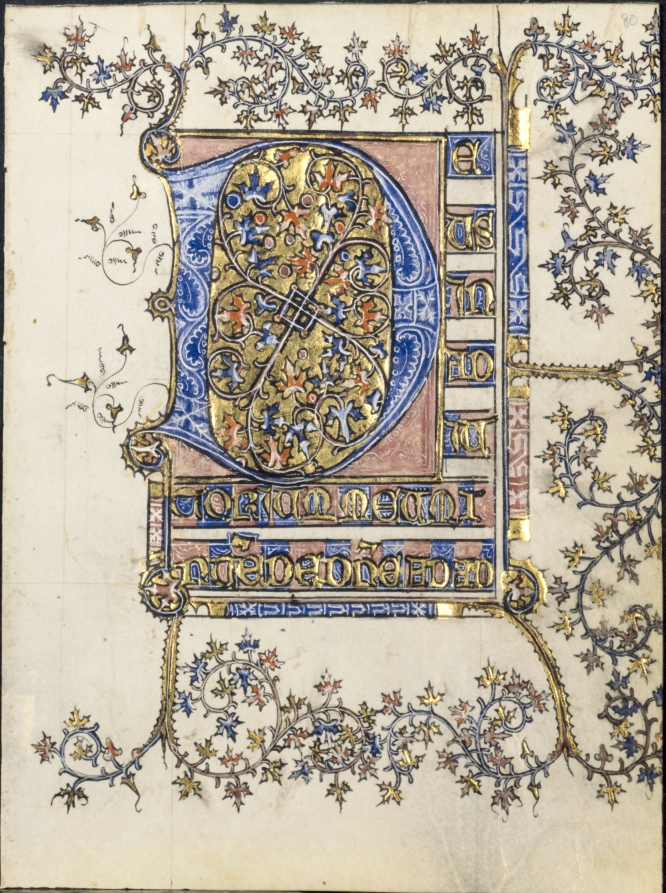 80
D
E
US
IN
AD
IU
TORIUM MEUM I
NTĒDE DN̄E AD AD